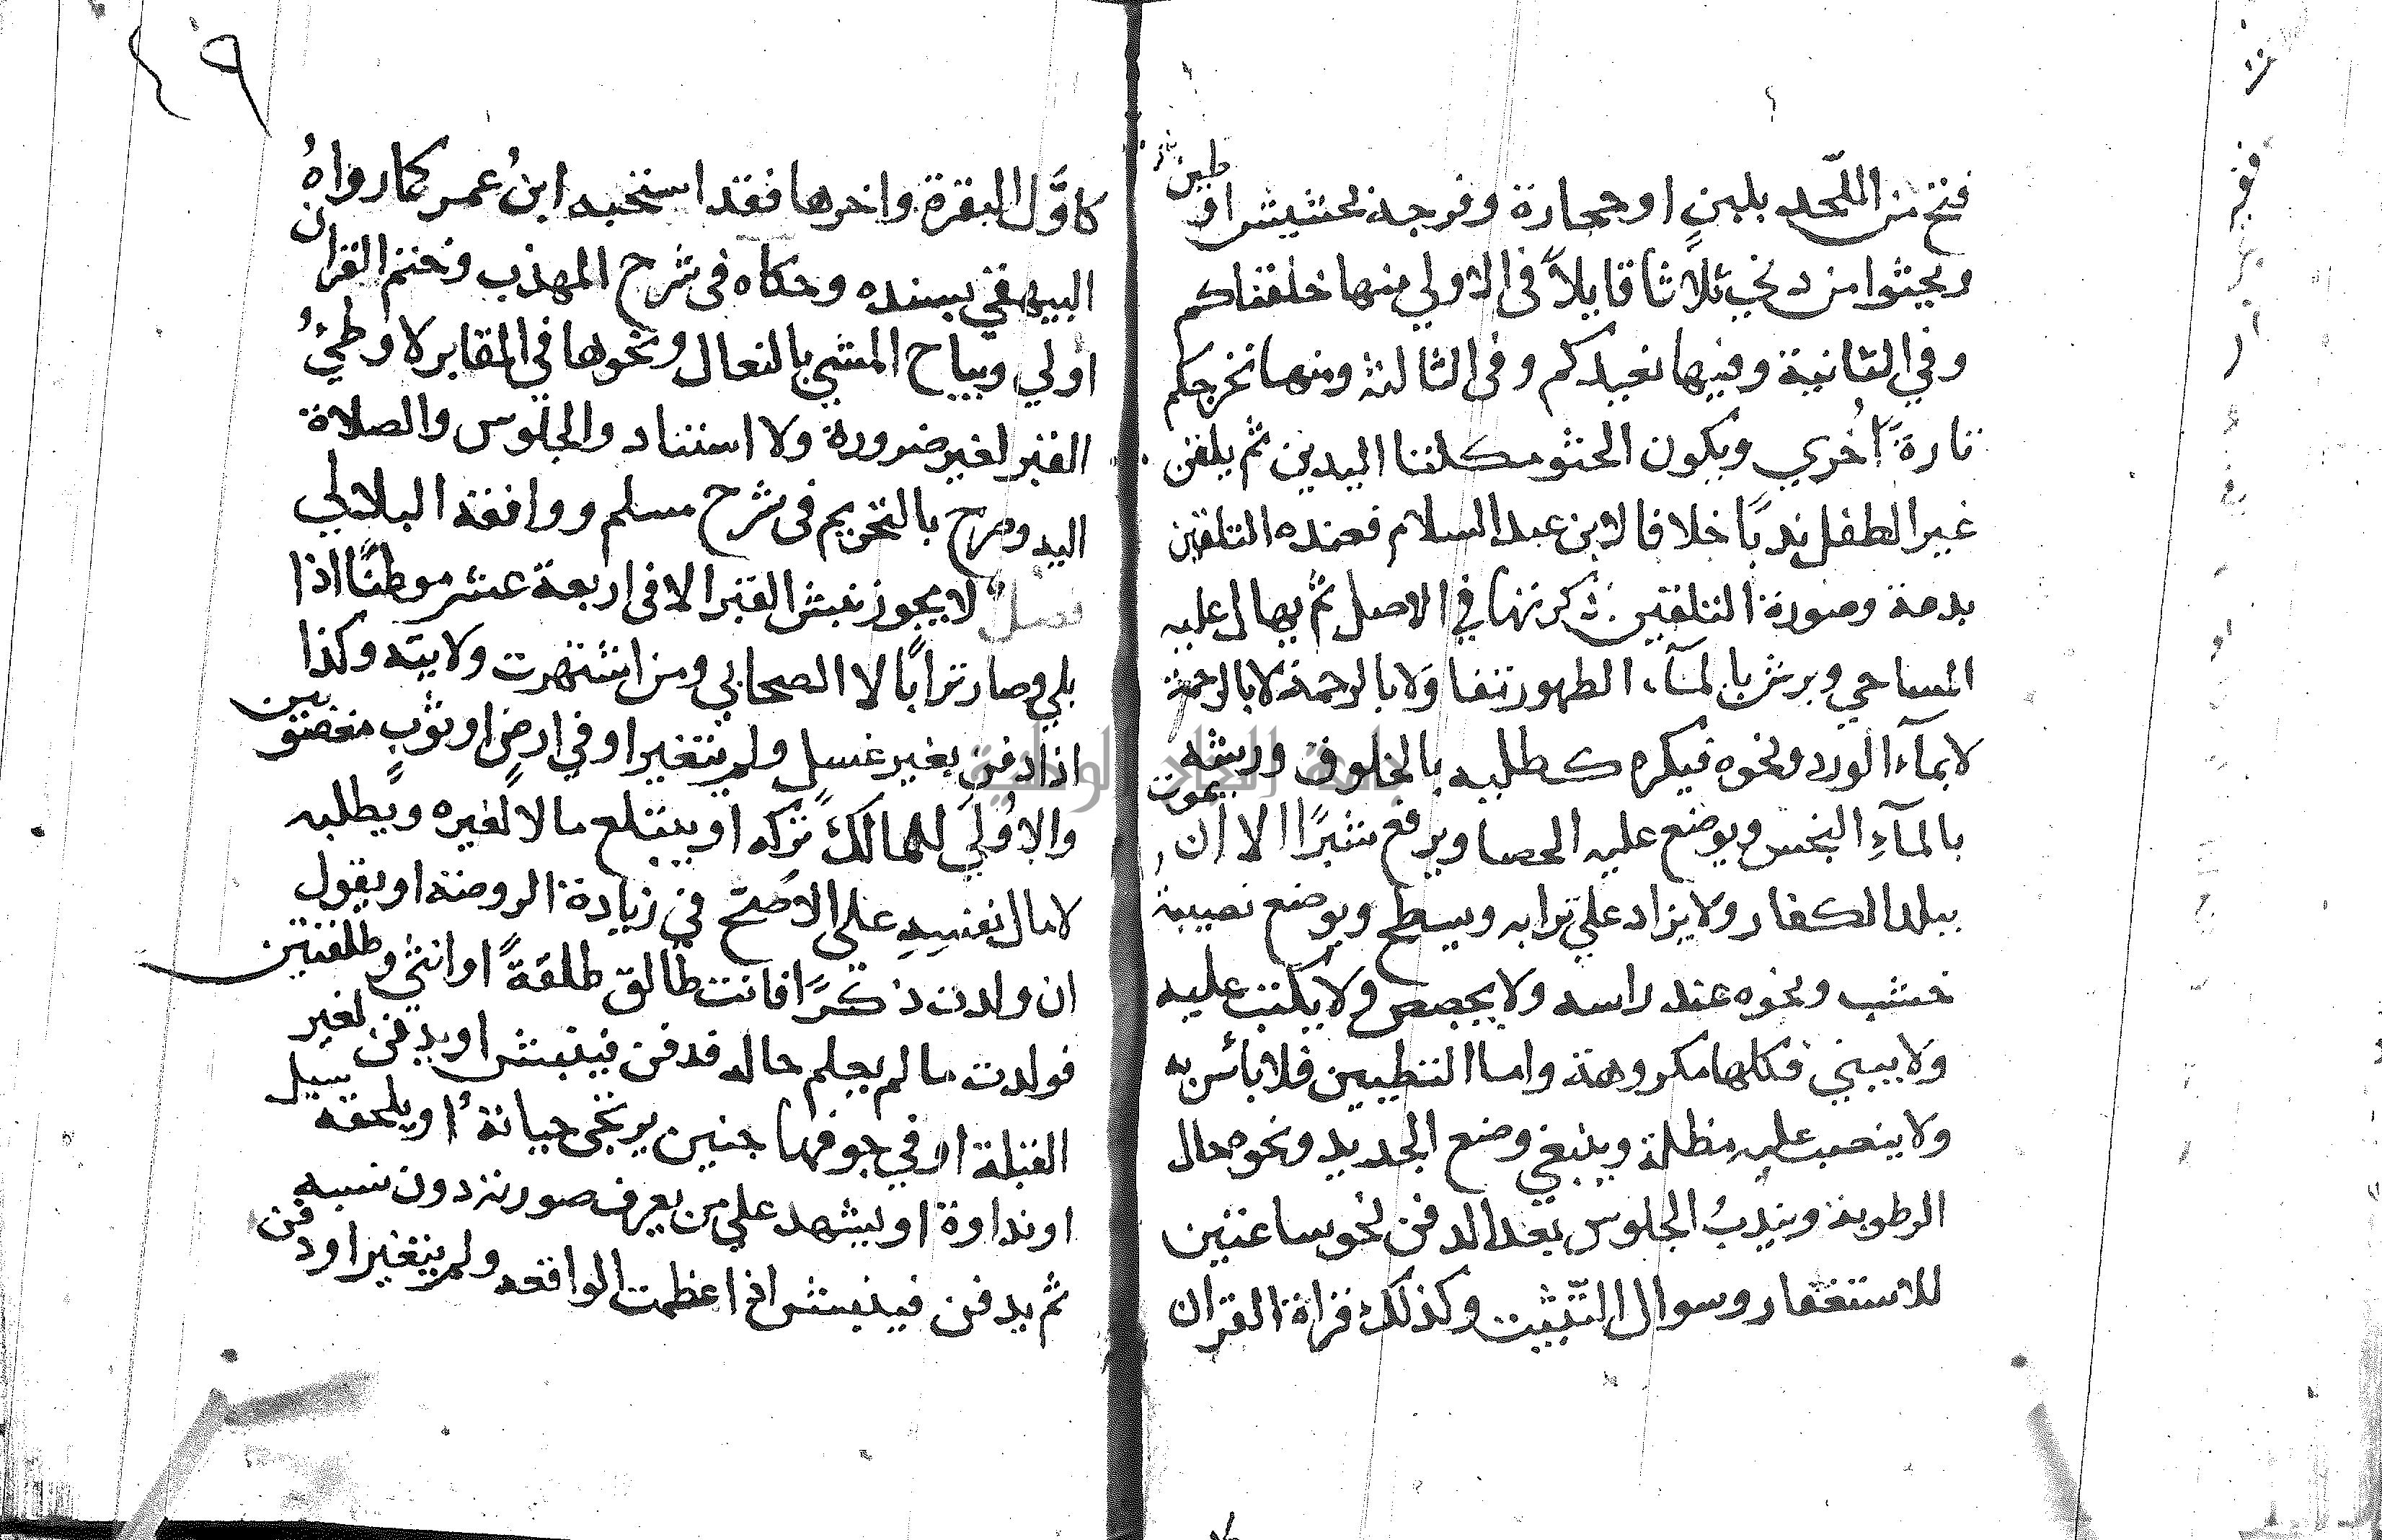 فتح من اللّحد بلبن او حجارة وفرجه بحشيش او طين
ويحثوا من دنى ثلاثا قايلاً في الاولي منها خلقناكم
وفي الثانية وفيها نعيدكم وفي الثالثة ومنها نخرجكم
تارةً أخري ويكون الحثو بكلتا اليدين ثم يلقن
غير الطفل ندبًا خلافا لابن عبد السلام فعنده التلقين
بدعة وصورة التلقين ذكرتها في الاصل ثم يهال عليه
المساحي ويرش بالمآء الطهور تفا ولا بالرحمة لا بالرحمة
لا بمآء الورد ونحوه فيكره كطلبه بالخلوق وريشه
بالمآءِ النجس ويوضع عليه الحصا ويرفع شبرًا الا ان يموت
ببلد الكفار ولا يزاد علي ترابه ويسطح ويوضع نصيبة
خشب ونحوه عند راسه ولا يجصص ولا يكتب عليه
ولا يبني فكلها مكروهة واما التطيين فلا بائس به
ولا ينصب عليه مظلة وينبغي وضع الجديد ونحوه حال
الرطوبة ويندبُ الجلوس بعد الدفن نحو ساعتين
للاستغفار وسوال التّثبيت وكذلك قراة القران
٤٩
كاوَّل البقرة واخرها فقد استحبه ابنُ عمر كما رواهُ
البيهقي بسنده وحكاه في شرح المهذب وختم القران
اولي ويباح المشي بالنعال ونحوها في المقابر لا وطيُ
القبر لغير ضرورة ولا استناد والجلوس والصلاة
اليه وصرح بالتحريم في شرح مسلم ووافقه البلالي
فصل لا يجوز نبش القبر الا في اربعة عشر موطنًا اذا
بلي وصار ترابًا لا الصحابي ومن اشتهرت ولايته وكذا
اذا دفن بغير غسل ولم يتغير او في ارض او ثوب مغصوبين
والاوُليَ للمالك تركه او يبتلع مالا لغيره ويطلبه
لا مال نفسِهِ على الاصّح في زيادة الروضة او يقول
ان ولدت ذكرًا فانت طالق طلقةً او انثي وطلقتين
فولدت ما لم يعلم حاله فدفن فينبش او يدفن لغير
القبلة او في جوفها جنين يرتجى حياتهُ او يلحقه سيل
او نداوة او يشهد علي من يعرف صورته دون نسبه
ثم يدفن فينبش اذا عظمت الواقعه ولم يتغير او دفن